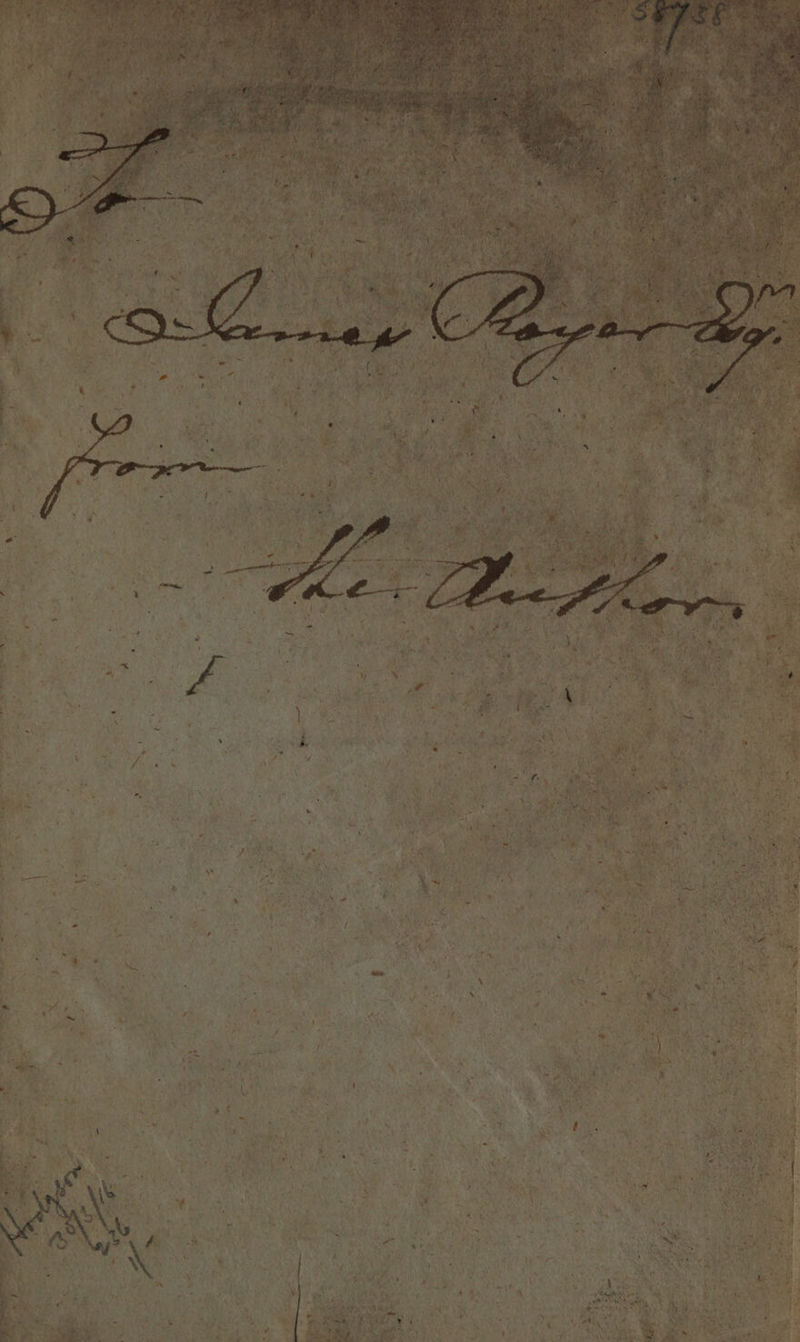 58738
To
James Royer Esqr.
from
the Author.
Hodgson
30/3/16